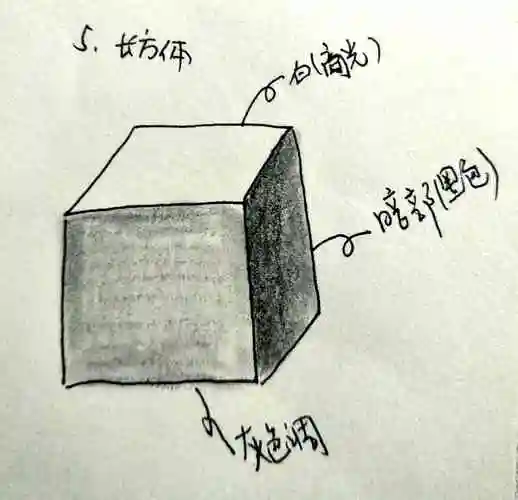 5. 长方体
白(高光)
暗部(黑色)
灰色调